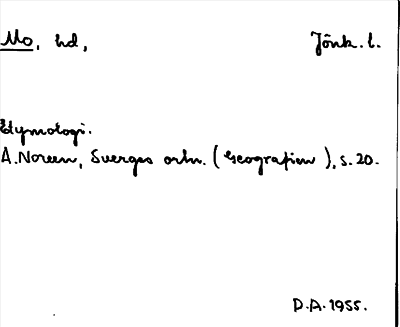 Mo, hd, Jönk. l.
Etymologi.
A. Noreen, Sverges ortn. (Geografien), s. 20.
D.A. 1955.